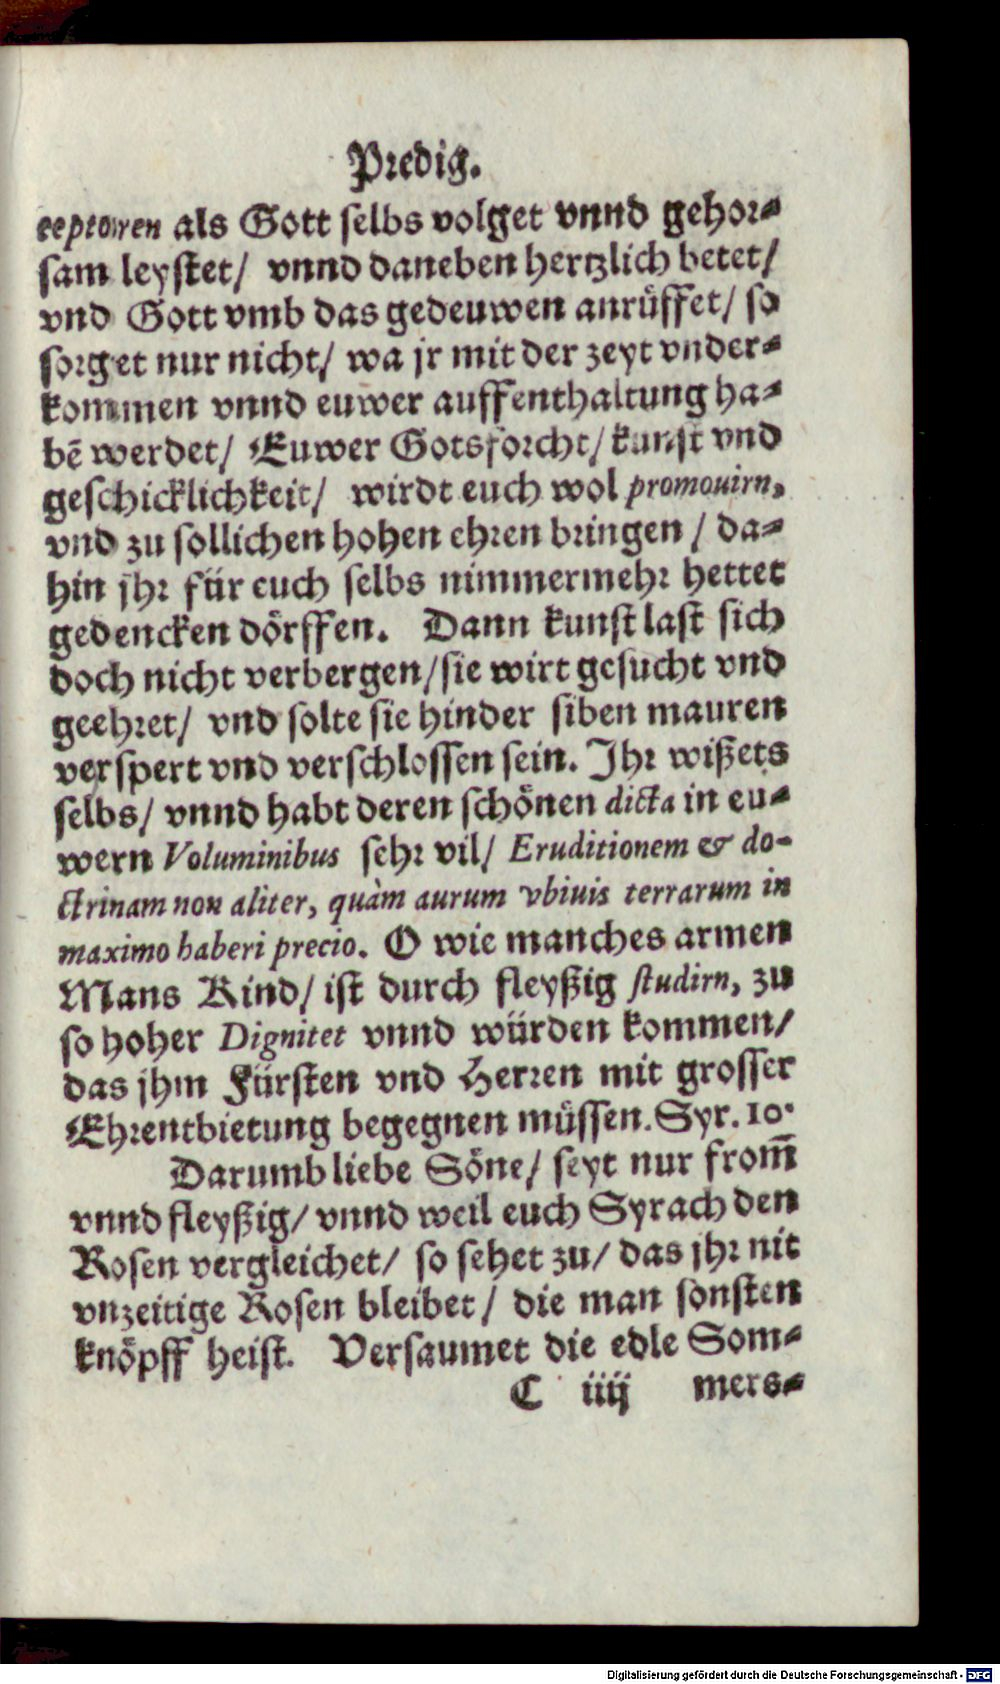 Predig.
ceptorren als Gott selbs volget vnnd gehor⸗
sam leystet/ vnnd daneben hertzlich betet/
vnd Gott vmb das gedeuwen anrüffet/ so
sorget nur nicht/ wa jr mit der zeyt vnder⸗
kommen vnnd euwer auffenthaltung ha⸗
bē werdet/ Euwer Gotsforcht/ kunst vnd
geschicklichkeit/ wirdt euch wol promouirn,
vnd zu sollichen hohen ehren bringen / da⸗
hin jhr für euch selbs nimmermehr hettet
gedencken dörffen. Dann kunst last sich
doch nicht verbergen/ sie wirt gesucht vnd
geehret/ vnd solte sie hinder siben mauren
verspert vnd verschlossen sein. Jhr wißets
selbs/ vnnd habt deren schönen dicta in eu⸗
wern Voluminibus sehr vil/ Eruditionem & do-
ctrinam non aliter, quàm aurum vbiuis terrarum in
maximo haberi precio. O wie manches armen
Mans Kind/ ist durch fleyßig studirn, zu
so hoher Dignitet vnnd würden kommen/
das jhm Fürsten vnd Herren mit grosser
Ehrentbietung begegnen müssen. Syr. 10.
Darumb liebe Söne/ seyt nur from̄
vnnd fleyßig/ vnnd weil euch Syrach den
Rosen vergleichet/ so sehet zu/ das jhr nit
vnzeitige Rosen bleibet/ die man sonsten
knöpff heist. Versaumet die edle Som⸗
C iiij mers⸗
Digitalisierung gefördert durch die Deutsche Forschungsgemeinschaft - DFG